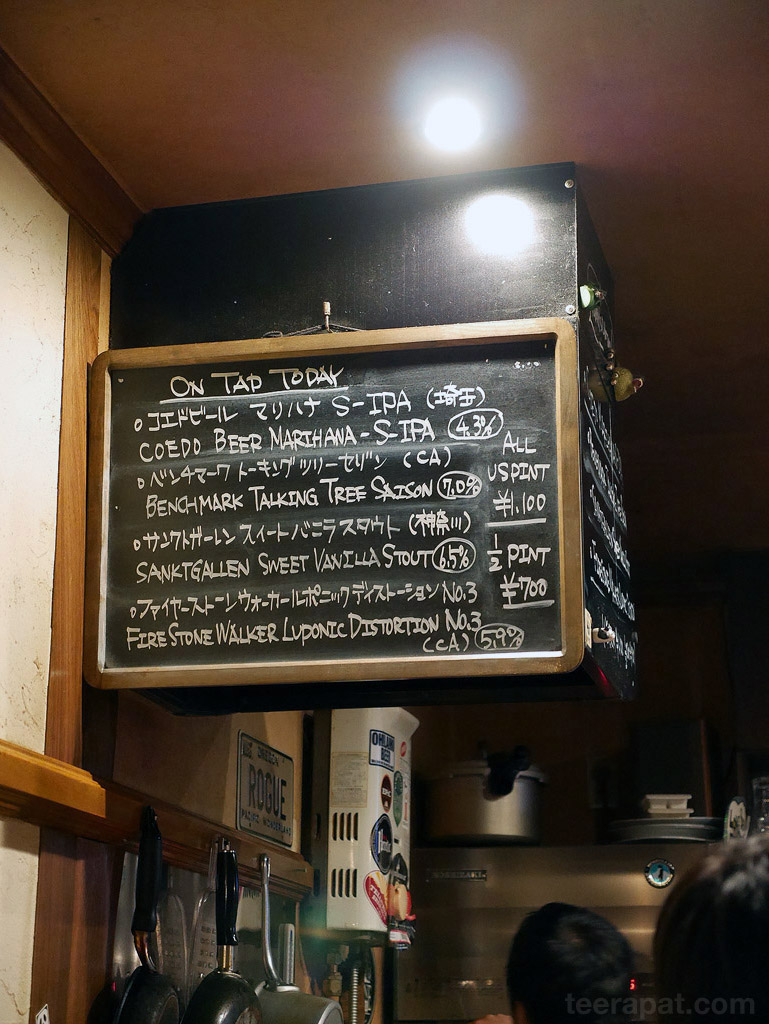 ON TAP TODAY
コエドビール マリハナ S-IPA (埼玉)
COEDO BEER MARIHANA - S-IPA 4.3%
ベンチマーク トーキングツリーセゾン (CA)
BENCHMARK TALKING TREE SAISON 7.0%
サンクトガーレン スイートバニラスタウト (神奈川)
SANKTGALLEN SWEET VANILLA STOUT 6.5%
ファイヤーストーンウォーカールポニックディストーション No.3
FIRESTONE WALKER LUPONIC DISTORTION No.3
(CA) 5.9%
ALL
US PINT
¥1,100
1/2 PINT
¥700
OREGON
ROGUE
PACIFIC WONDERLAND
teerapat.com